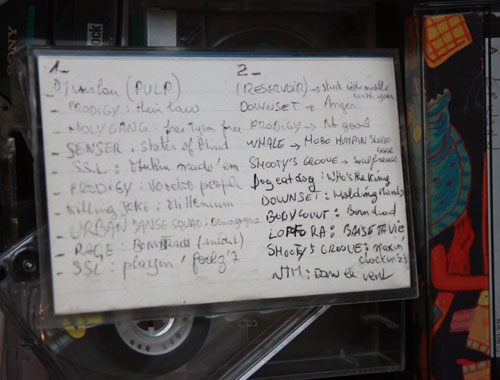 SONY
ock
1-
(PULP)
- PRODIGY: their law
- HOLY GANG: free Tyson free
- SENSER: States of Mind
- S.S.L:
- PRODIGY: voodoo people
- Killing JOKE: Millenium
URBAN DANSE SQUAD: Demagogue
- RAGE:
- SSL: playin'
2-
(RESERVOIR) → stuck with middle with you
DOWNSET → Anger
PRODIGY → No good
WHALE → HOBO HUMPIN SLOBO BABE
SHOOTY'S GROOVE →
Dog eat dog: WHO's the King
DOWNSET:
BODYCOUNT: Born dead
LOFOFORA: BAISE TA VIE
SHOOTY'S GROOVE:
NTM: Dans le vent